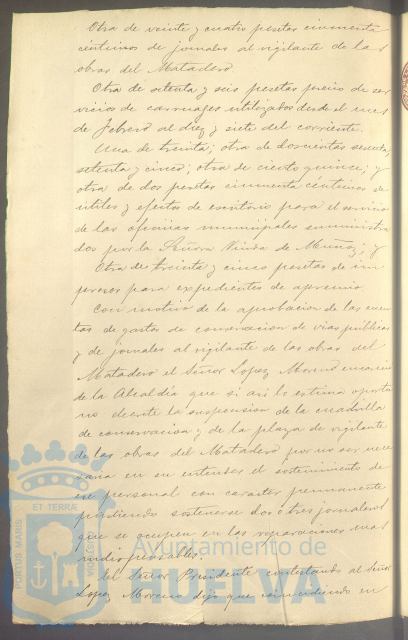 Otra de veinte y cuatro pesetas cincuenta
céntimos de jornales al vigilante de las
obras del Matadero
Otra de setenta y seis pesetas precio de ser
vicios de carruages utilizados desde el mes
de Febrero al diez y siete del corriente.
Una de treinta; otra de doscientas sesenta;
setenta y cinco; otra de ciento quince; y
otra de dos pesetas cincuenta céntimos de
útiles y efectos de escritorio para el servicio
de las oficinas municipales suministra
dos por la Señora Viuda de Muñoz; y
Otra de treinta y cinco pesetas de im
presos para expedientes de apremio
Con motivo de la aprobacion de las cuen
tas de gastos de conservacion de vias públicas
y de jornales al vigilante de las obras del
Matadero el Señor Lopez Moreno
de la Alcaldía que si asi lo estima oportu
no decrete la suspension de la cuadrilla
de conservacion y de la plaza de vigilante
de las obras del Matadero por no ser nece
saria en su entender el sostenimiento de
ese personal con caracter permanente
pudiendo sostenerse dos ó tres jornaleros
que se ocupen en las reparaciones mas
indispensables.
El Señor Presidente contestando al Señor
Lopez Moreno dijo que coincidiendo en
PORTUS MARIS
ET TERRAE
CUSTODIA
Ayuntamiento de
HUELVA